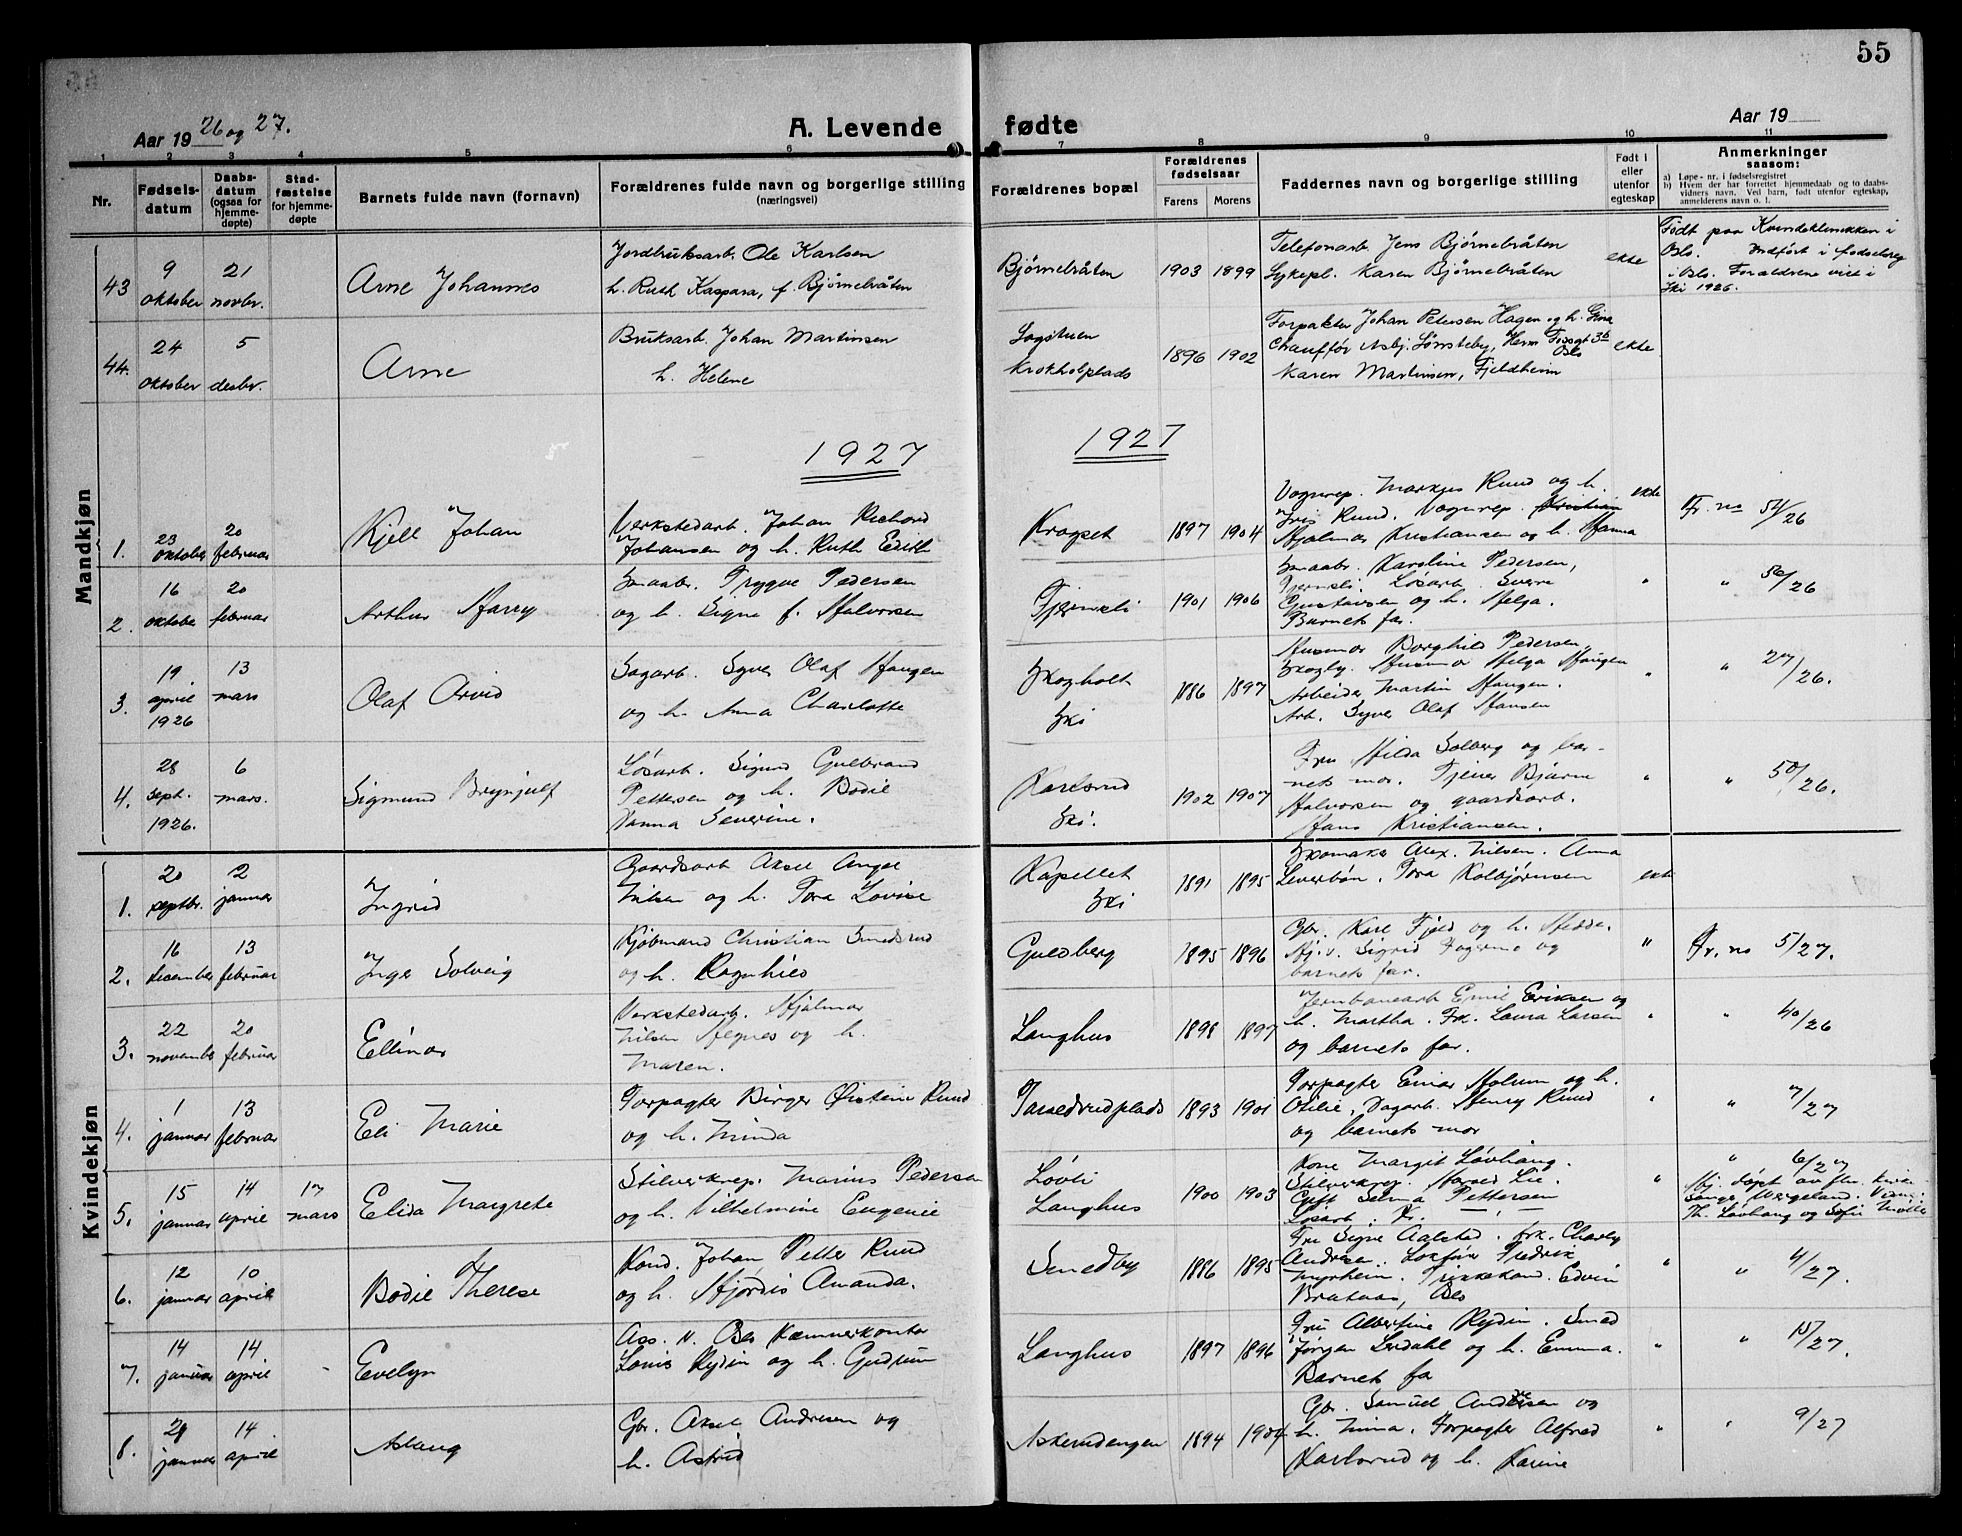 55
Aar 19 26 og 27.
A. Levende fødte
Aar 19
1 2 3 4 5 6 7 8 9 10 11
Nr.
Fødsels-
datum
Daabs-
datum
(ogsaa for
hjemme-
døpte)
Stad-
fæstelse
for hjemme-
døpte
Barnets fulde navn (fornavn)
Forældrenes fulde navn og borgerlige stilling
(næringsvei)
Forældrenes bopæl
Forældrenes
fødselsaar
Farens Morens
Faddernes navn og borgerlige stilling
Født i
eller
utenfor
egteskap
Anmerkninger
saasom:
a) Løpe-nr. i fødselsregistret
b) Hvem der har forrettet hjemmedaab og to daabs-
vidners navn. Ved barn, født utenfor egteskap,
anmelderens navn o. l.
Mandkjøn
43
9
oktober
21
novbr.
Arne Johannes
Jordbruksarb. Ole Karlsen
h. Ruth Kaspara, f. Bjørnebråten
Bjørnebråten
1903 1899
Telefonarb. Jens Bjørnebråten
Sykepl. Karen Bjørnebråten
ekte
Født paa Kvindeklinikken i
Oslo. Indført i fødselsreg
i Oslo. Forældrene viet i
Ski 1926.
44.
24
oktober
5
desbr.
Arne
Bruksarb. Johan Martinsen
h. Helene
Sagstuen
Krokholplads
1896 1902
Forpakter Johan Petersen Hagen og h. Gina
Chauffør Asbj. Sønsteby, Herm Fossgt 3b
Oslo
Karen Martinsen, Fjeldheim
ekte
1927
1927
1.
23
oktober
20
februar
Kjell Johan
Verkstedarb. Johan Richard
Johansen og h. Ruth Edith
Kragset
1897 1904
Vognrep. Markus Ruud og h.
Iris Ruud. Vognrep. Kristian
Hjalmar Kristiansen og h. Hanna
ekte
Fr. no 54/26
2.
16
oktober
20
februar
Arthur Harry
Smaabr. Trygve Pedersen
og h. Signe f. Halvorsen
Fjernsli
1901 1906
Smaabr. Karoline Pedersen,
Fjernsli Løsarb. Sverre
Gustavsen og h. Helga.
Barnets far.
"
" 56/26
3.
19
april
1926
13
mars
Olaf Arvid
Sagarb. Syver Olaf Haugen
og h. Anna Charlotte
Skogholt
Ski
1886 1897
Husmor Borghild Pedersen,
Skogly. Husmor Helga Haugen
Arbeider Martin Haugen.
Arb. Syver Olaf Hansen
"
" 27/26.
4.
28
sept.
1926.
6
mars.
Sigmund Brynjulf
Løsarb. Sigurd Gulbrand
Pettersen og h. Bodil
Nanna Severine.
Karlsrud
Ski.
1902 1907
Fru Hilda Solberg og bar-
nets mor. Tjener Bjarne
Halvorsen og gaardsarb.
Hans Kristiansen.
"
" 50/26.
Kvindekjøn
1.
20
septbr.
2
januar
Ingrid
Gaardsarb Aksel Angel
Nilsen og h. Tora Lovise
Kapellet
Ski
1891 1895
Skomaker Alex. Nilsen. Anna
Leverbøn. Tora Kolbjørnsen
ekte
2.
16
december
13
februar
Inger Solveig
Kjøbmand Christian Smedsrud
og h. Ragnhild
Guldberg
1895 1896
Gbr. Karl Fjeld og h. Hedda.
Hj.v. Sigrid Fagermo og
barnets far.
"
Fr. no 5/27.
3.
22
november
20
februar
Ellinor
Verkstedarb. Hjalmar
Nilsen Hegnes og h.
Maren.
Langhus
1898 1897
Jernbanearb Emil Eriksen og
h. Martha. Frk. Laura Larsen
og barnets far.
"
" 40/26
4.
1
januar
13
februar
Eli Marie
Forpagter Birger Øistein Ruud
og h. Minda
Taraldrudplads
1893 1901
Forpagter Einar Holum og h.
Otilie, Dagarb. Henry Ruud
og barnets mor
"
" 7/27
5.
15
januar
14
april
17
mars
Elida Margrete
Stilverksrep. Marius Pedersen
og h. Vilhelmine Eugenie
Løvli
Langhus
1900 1903
Kone Margit Løvhaug.
Stilverksrep. Harald Lie.
Gift Selma Pettersen
Løsarb.
"
" 6/27
Hj. døpt av
Th. Løvhaug og Sofie
6.
12
januar
10
april
Bodil Therese
Kond. Johan Petter Ruud
og h. Hjørdis Amanda.
Smedby
1886 1895
Fru Signe Aalstad. frk. Charly
Andresen. Lokfører Fredrik
Myrheim. Trikkekond. Edvin
Brataas, Oslo
"
" 4/27.
7.
14
januar
14
april
Evelyn
Ass. v. Oslo Kæmnerkontor
Louis Rydin og h. Gudrun
Langhus
1897 1896
Fru Albertine Rydin. Smed
Jørgen Lerdahl og h. Emma.
Barnets far
"
" 10/27.
8.
29
januar
14
april
Aslaug
Gbr. Aksel Andresen og
h. Astrid
Askerudengen
1894 1904
Gbr. Samuel Andresen og
h. Minna. Forpagter Alfred
Karlsrud og h. Karine
"
" 9/27